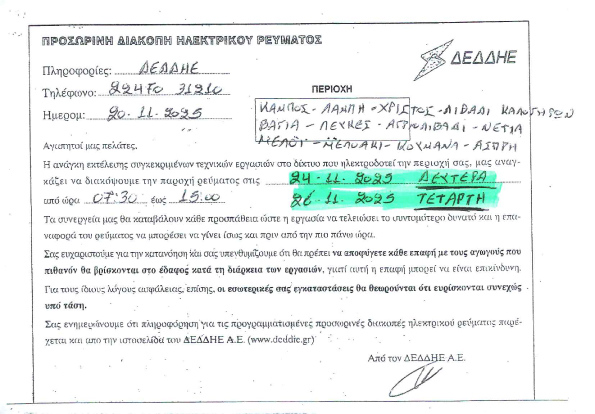 ΠΡΟΣΩΡΙΝΗ ΔΙΑΚΟΠΗ ΗΛΕΚΤΡΙΚΟΥ ΡΕΥΜΑΤΟΣ
ΔΕΔΔΗΕ
Πληροφορίες: ΔΕΔΔΗΕ
Τηλέφωνο: 22470 31210
Ημερομ: 20-11-2025
ΠΕΡΙΟΧΗ
ΚΑΜΠΟΣ-ΛΑΜΠΗ-ΧΡΙΣΤΟΣ-ΛΙΒΑΔΙ ΚΑΛΟΓΗΡΩΝ
ΒΑΓΙΑ-ΛΕΥΚΕΣ-ΑΓΡΙΟΛΙΒΑΔΙ-ΝΕΤΙΑ
ΜΕΛΟΪ-ΜΕΛΟΑΚΙ-ΚΟΥΜΑΝΑ-ΑΣΠΡΗ
Αγαπητοί μας πελάτες.
Η ανάγκη εκτέλεσης συγκεκριμένων τεχνικών εργασιών στο δίκτυο που ηλεκτροδοτεί την περιοχή σας, μας αναγ-
κάζει να διακόψουμε την παροχή ρεύματος στις 24-11-2025 ΔΕΥΤΕΡΑ
από ώρα 07:30 έως 15:00 26-11-2025 ΤΕΤΑΡΤΗ
Τα συνεργεία μας θα καταβάλουν κάθε προσπάθεια ώστε η εργασία να τελειώσει το συντομότερο δυνατό και η επα-
ναφορά του ρεύματος να μπορέσει να γίνει ίσως και πριν από την πιο πάνω ώρα.
Σας ευχαριστούμε για την κατανόηση και σας υπενθυμίζουμε ότι θα πρέπει να αποφύγετε κάθε επαφή με τους αγωγούς που
πιθανόν θα βρίσκονται στο έδαφος κατά τη διάρκεια των εργασιών, γιατί αυτή η επαφή μπορεί να είναι επικίνδυνη.
Για τους ίδιους λόγους ασφάλειας, επίσης, οι εσωτερικές σας εγκαταστάσεις θα θεωρούνται ότι ευρίσκονται συνεχώς
υπό τάση.
Σας ενημερώνουμε ότι πληροφόρηση για τις προγραμματισμένες προσωρινές διακοπές ηλεκτρικού ρεύματος παρέ-
χεται και απο την ιστοσελίδα του ΔΕΔΔΗΕ Α.Ε. (www.deddie.gr)
Από τον ΔΕΔΔΗΕ Α.Ε.